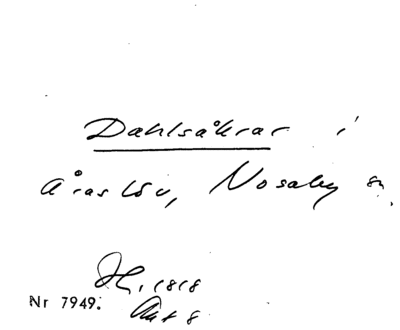 Dahlsåkrar i
Åraslöv, Nosaby sn.
H. 1818
Nr 7949. Akt 8